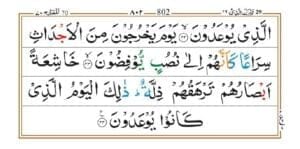 ٨٠٢ 802
الَّذِي يُوعَدُونَ ﴿٤٢﴾ يَوْمَ يَخْرُجُونَ مِنَ الْأَجْدَاثِ
سِرَاعًا كَأَنَّهُمْ إِلَىٰ نُصُبٍ يُوفِضُونَ ﴿٤٣﴾ خَاشِعَةً
أَبْصَارُهُمْ تَرْهَقُهُمْ ذِلَّةٌ ۚ ذَٰلِكَ الْيَوْمُ الَّذِي
كَانُوا يُوعَدُونَ ﴿٤٤﴾